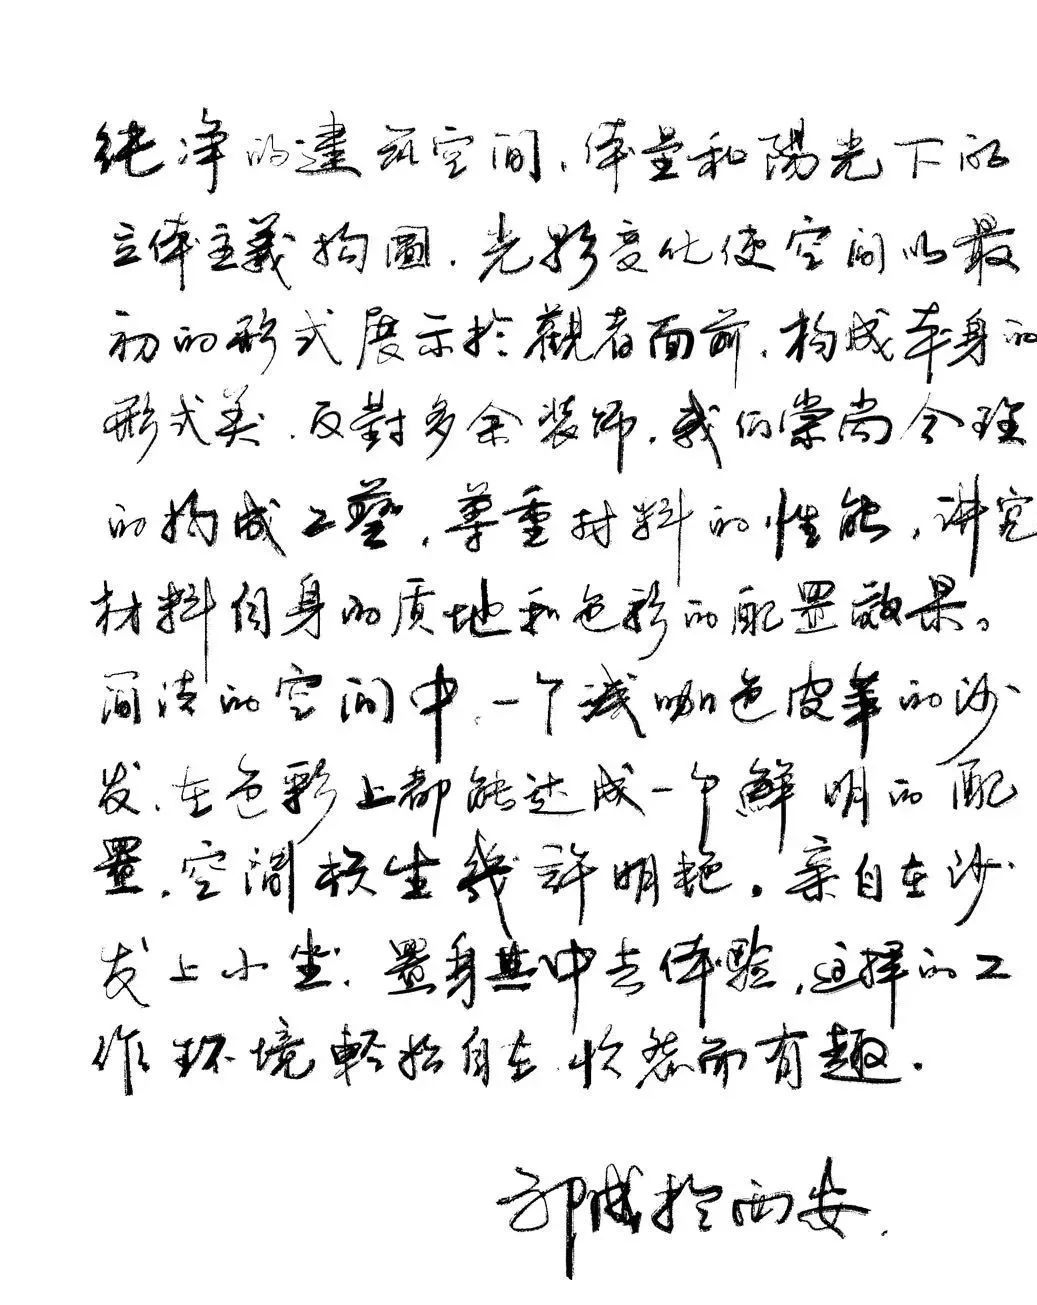 纯净的建筑空间、体量和陽光下的
立体主義构圖.光影变化使空间以最
初的形式展示於觀者面前,构成本身的
形式美.反對多余装饰.我们崇尚合理
的构成工藝,尊重材料的性能,讲究
材料自身的质地和色彩的配置效果。
简洁的空间中,一个浅咖色皮革的沙
发.在色彩上都能达成一个鲜明的配
置.空间横生幾許明艳.亲自在沙
发上小坐.置身其中去体驗,这样的工
作环境輕松自在 悠然而有趣.
邵诚於西安.